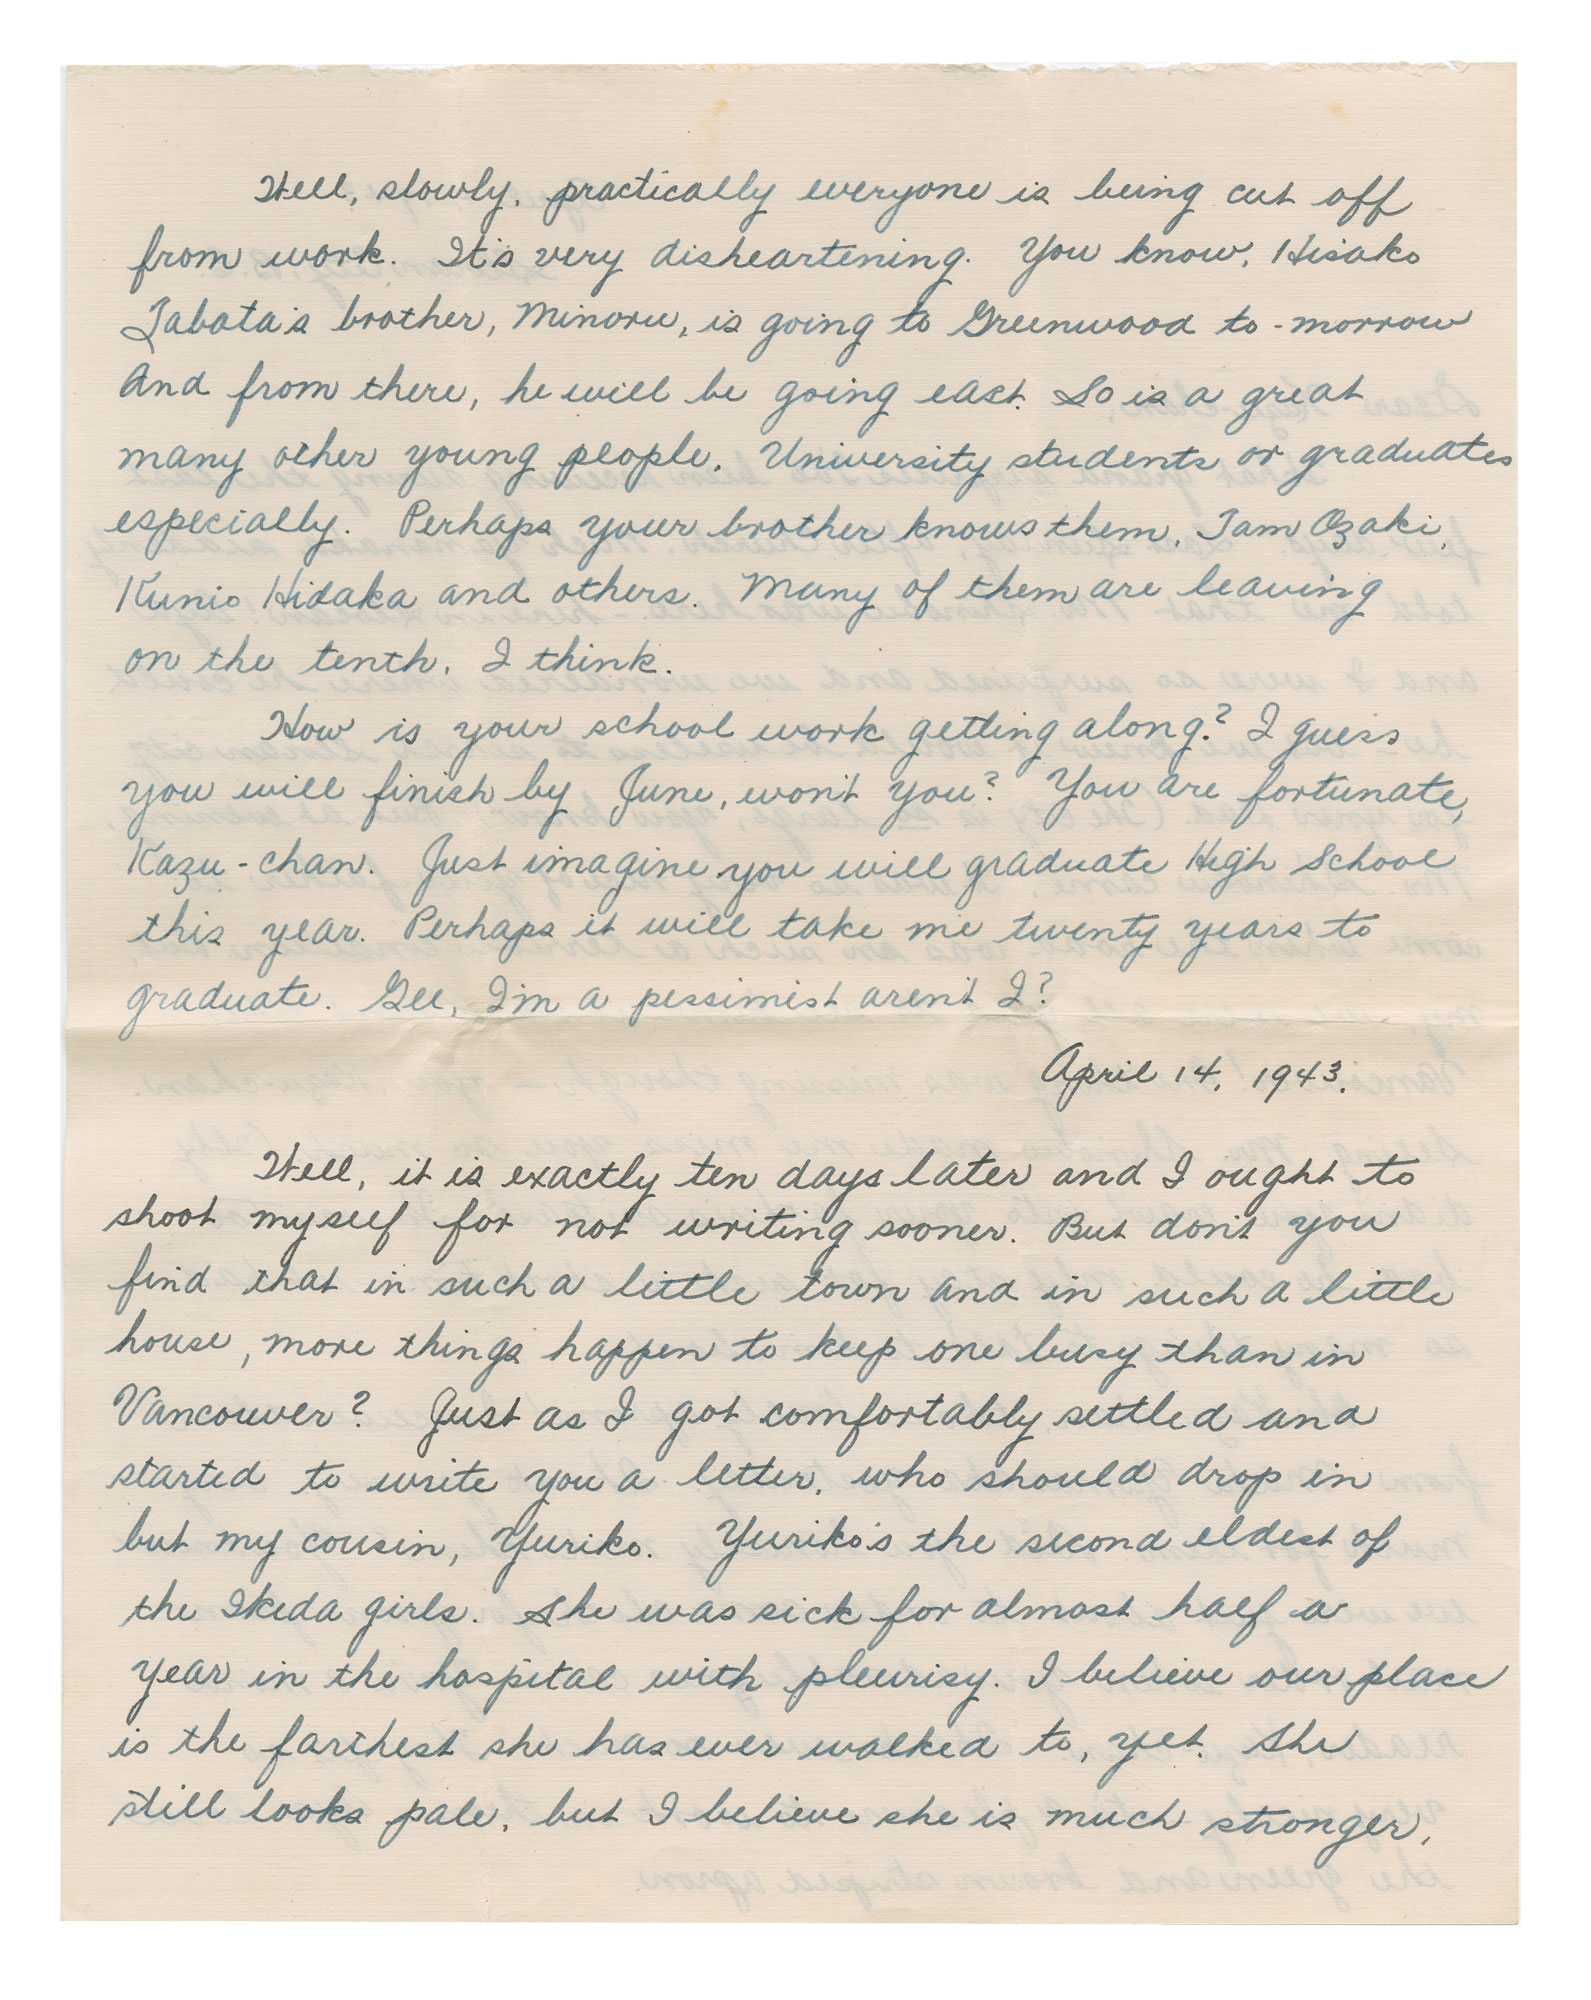 Well, slowly, practically everyone is being cut off
from work. It's very disheartening. You know, Hisako
Tabata's brother, Minoru, is going to Greenwood to-morrow
And from there, he will be going east. So is a great
many other young people. University students or graduates
especially. Perhaps your brother knows them, Tam Ozaki,
Kunio Hidaka and others. Many of them are leaving
on the tenth, I think.
How is your school work getting along? I guess
you will finish by June, won't you? You are fortunate,
Kazu-chan. Just imagine you will graduate High School
this year. Perhaps it will take me twenty years to
graduate. Gee, I'm a pessimist aren't I?
April 14, 1943.
Well, it is exactly ten days later and I ought to
shoot myself for not writing sooner. But don't you
find that in such a little town and in such a little
house, more things happen to keep one busy than in
Vancouver? Just as I got comfortably settled and
started to write you a letter, who should drop in
but my cousin, Yuriko. Yuriko's the second eldest of
the Ikeda girls. She was sick for almost half a
year in the hospital with pleurisy. I believe our place
is the farthest she has ever walked to, yet. She
still looks pale, but I believe she is much stronger,